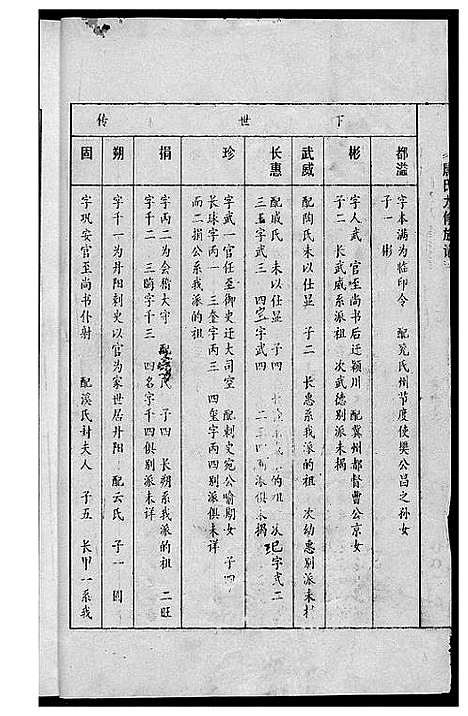 下世传
都溢
字本满为临印令 配兖氏州节度使樊公昌之孙女
子一 彬
彬
字人武 官至尚书后迁颍川 配冀州都督曹公京女
子二 长武威系派祖 次武德别派未揭
武威
配陶氏未以仕显 子二 长惠系我派的祖 次幼惠别派未
长惠
配成氏 未以仕显 子四 的祖 次 字武二
三 字武四 四 字武四 别派俱
珍
字武一官任至御史迁大司空 配刺史宛公喻勋女 子四
长球字丙一 三奎字丙三 四玺字丙四别派俱未详
而二捐公系我派的祖
捐
字丙二为会稽大守 配 氏 子四 长朔系我派的祖 二旺
字千二 三晦字千三 四名字千四俱别派未详
朔
字千一为丹阳刺史以官为家世居丹阳 配云氏 子一 固
固
字巩安官至尚书仆射 配溪氏封夫人 子五 长甲一系我